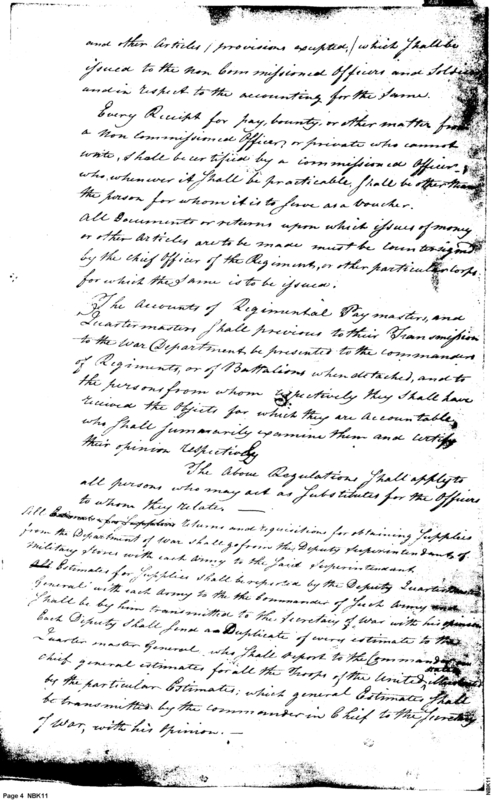 and other Articles / provisions excepted, / which shall be
issued to the non Commissioned Officers and Soldiers
and in respect to the accounting for the same.
Every Receipt for pay, bounty, or other matter from
a non Commissioned Officer, or private who cannot
write, shall be certified by a commissioned Officer,
who, whenever it shall be practicable, shall be other than
the person for whom it is to serve as a voucher.
All Documents or returns upon which issues of money
or other Articles are to be made must be countersigned
by the chief Officer of the Regiment, or other particular corps
for which the same is to be issued.
The Accounts of Regimental Paymasters, and
Quartermasters shall previous to their Transmission
to the War Department be presented to the commanders
of Regiments, or of Battalions when detached, and to
the persons from whom respectively they shall have
received the Objects for which they are accountable,
who shall summarily examine them and certify
their opinion respectively
The Above Regulations shall apply to
all persons who may act as Substitutes for the Officers
to whom they relate. —
All Estimates for Supplies returns and requisitions for obtaining Supplies
from the Department of War shall go from the Deputy Superintendants of
Military Stores with each Army to the said Superintendant
All Estimates for Supplies shall be reported by the Deputy Quarter
General with each Army to the Commander of such Army and
shall be by him transmitted to the Secretary of War with his opinion
Each Deputy shall send a Duplicate of every estimate to the
Quarter master General who shall report to the Commander in
chief general estimates for all the Troops of the United States
by the particular Estimates, which general Estimates shall
be transmitted by the commander in Chief to the Secretary
of War, with his Opinion. —
Page 4 NBK11
NBK11